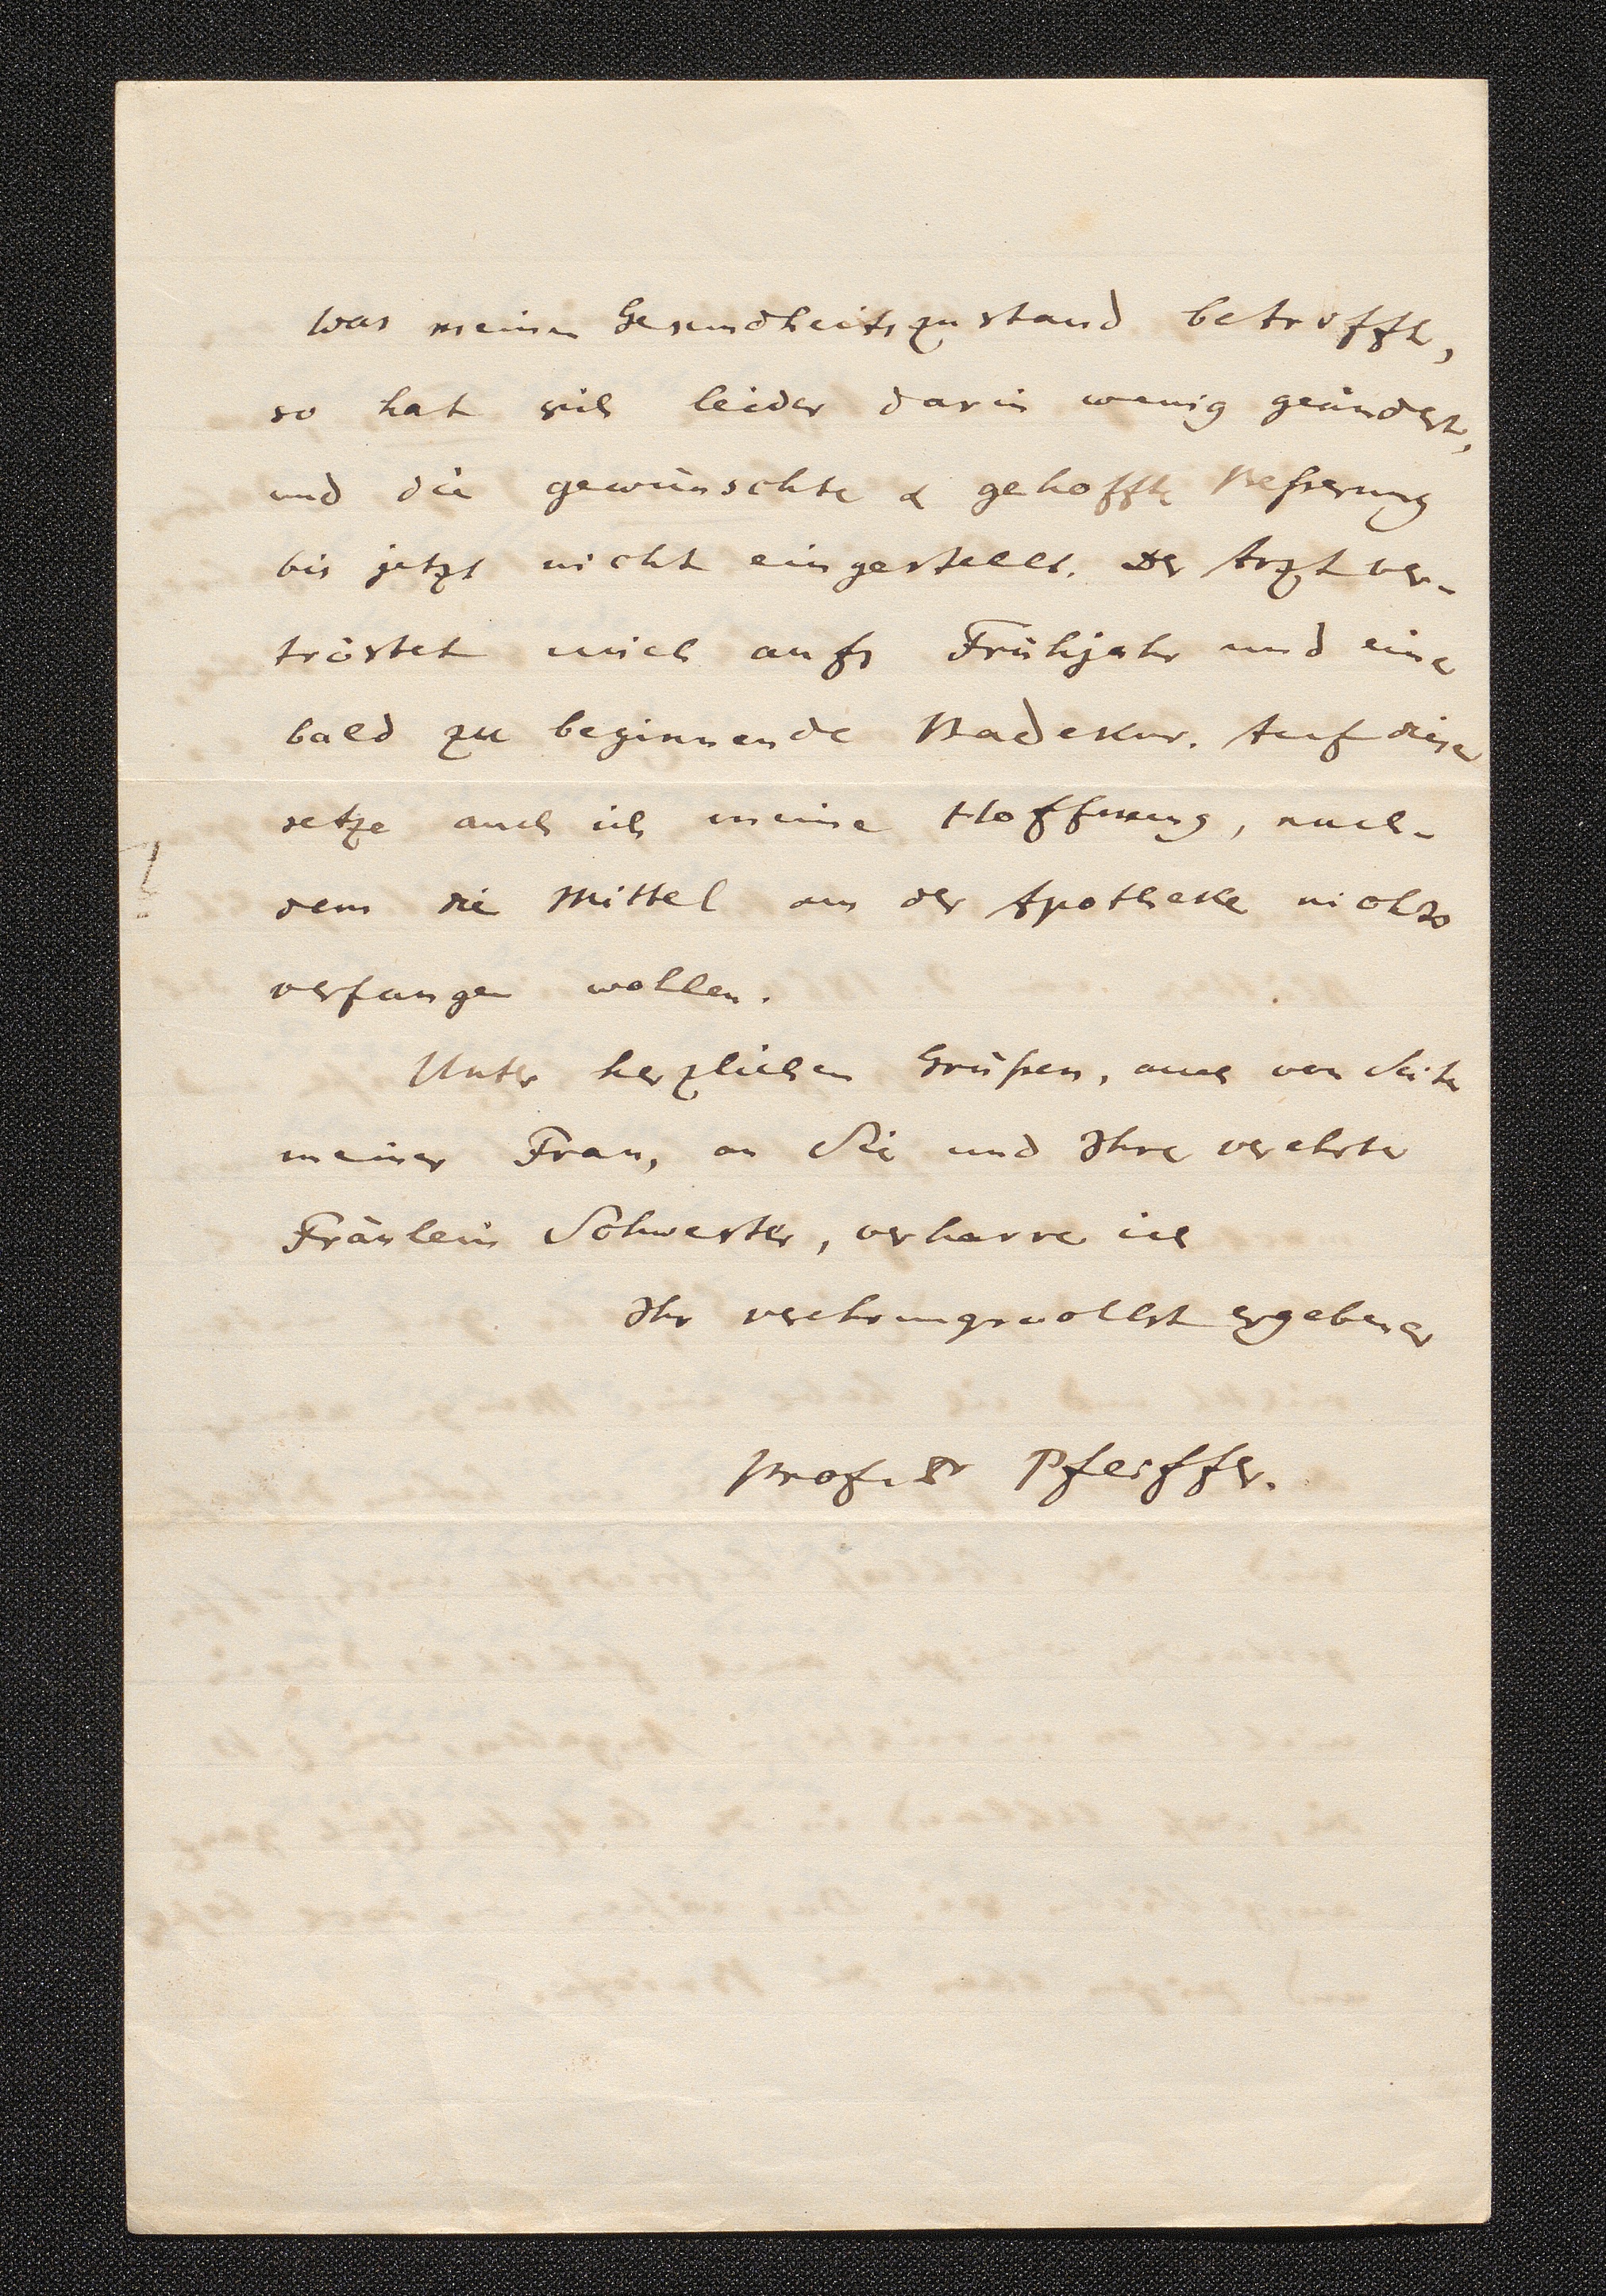 Was meinen Gesundheitszustand betrifft,
so hat sich leider darin wenig geändert,
und die gewünschte & gehoffte Besserung
bis jetzt nicht eingestellt. Der Arzt ver-
tröstet mich aufs Frühjahr und eine
bald zu beginnende Badekur. Auf diese
setze auch ich meine Hoffnung, nach-
dem die Mittel aus der Apotheke nichts
verfangen wollen.
Unter herzlichen Grüßen, auch von Seite
meiner Frau, an Sie und Ihre verehrte
Fräulein Schwester, verharre ich
Ihr verehrungsvollst ergebener
Prof. Dr Pfeiffer.